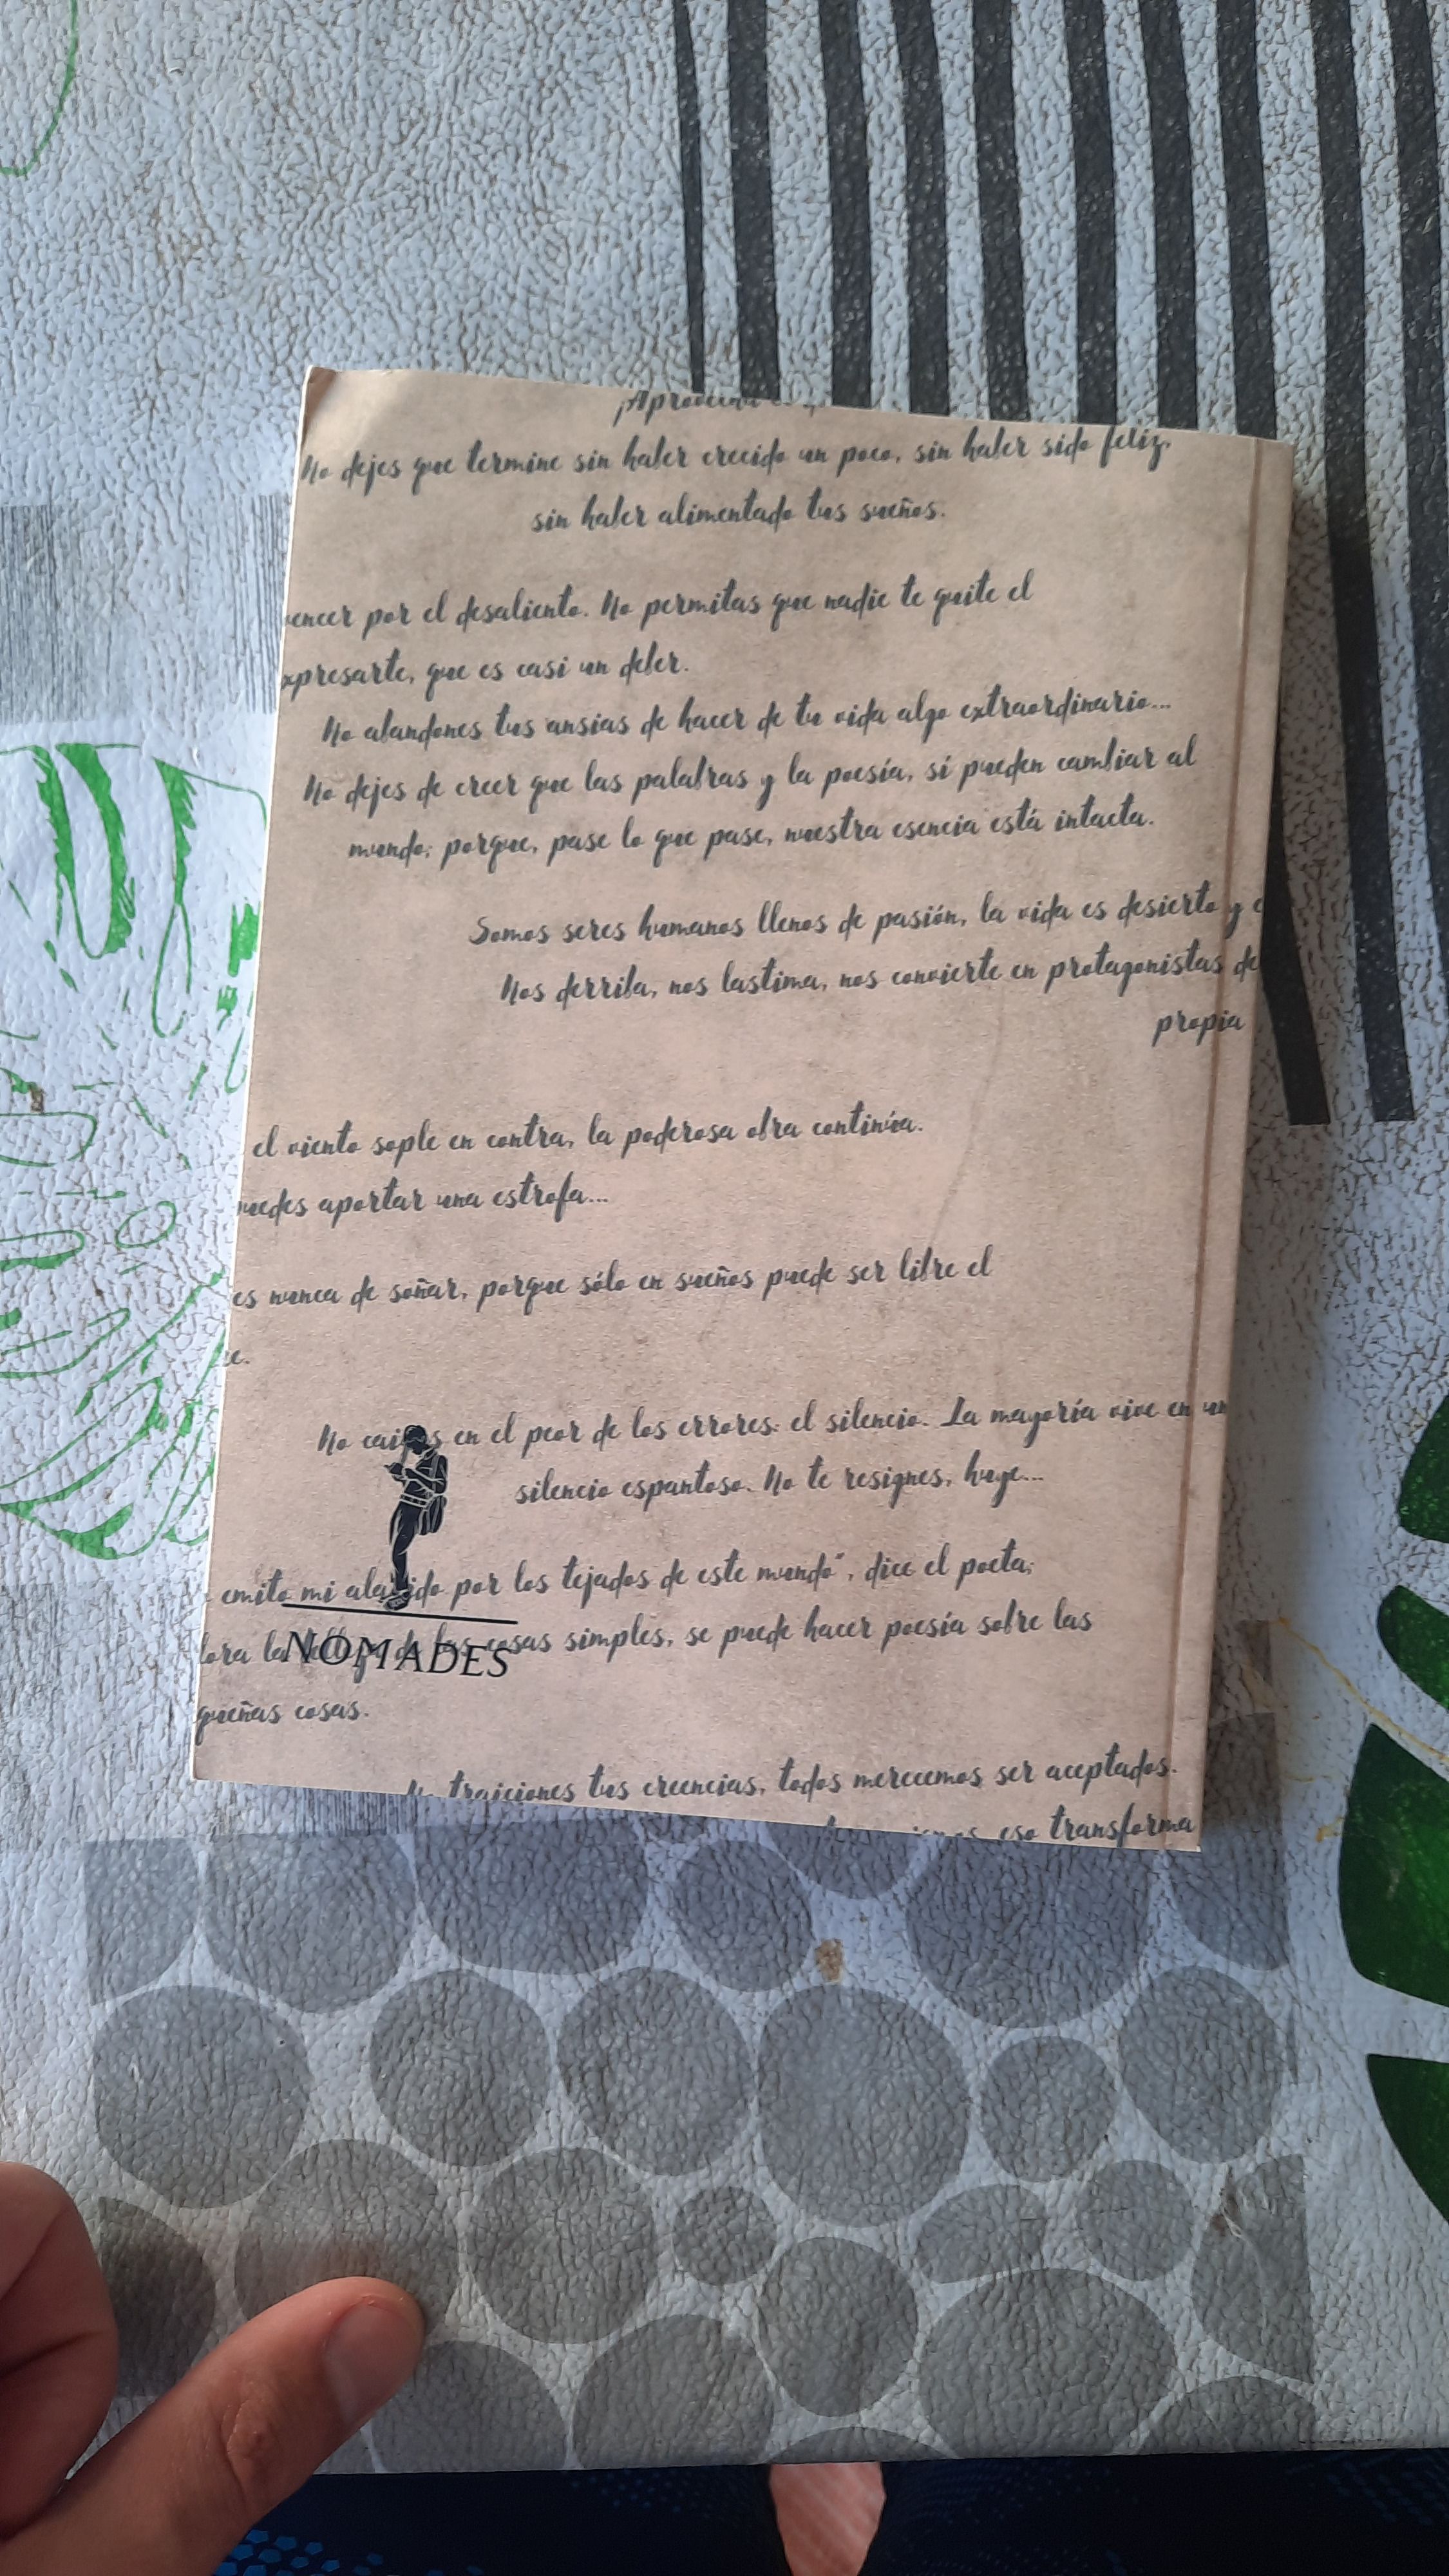 ¡Aprovecha
No dejes que termine sin haber crecido un poco, sin haber sido feliz,
sin haber alimentado tus sueños.
vencer por el desaliento. No permitas que nadie te quite el
xpresarte, que es casi un deber.
No abandones tus ansias de hacer de tu vida algo extraordinario...
No dejes de creer que las palabras y la poesía, sí pueden cambiar al
mundo; porque, pase lo que pase, nuestra esencia está intacta.
Somos seres humanos llenos de pasión, la vida es desierto y
Nos derriba, nos lastima, nos convierte en protagonistas de
propia
el viento sople en contra, la poderosa obra continúa.
uedes aportar una estrofa...
es nunca de soñar, porque sólo en sueños puede ser libre el
re.
No caigas en el peor de los errores: el silencio. La mayoría vive en un
silencio espantoso. No te resignes, huye...
emito mi alarido por los tejados de este mundo", dice el poeta;
lora la belleza de las cosas simples, se puede hacer poesía sobre las
NOMADES
queñas cosas.
No traiciones tus creencias, todos merecemos ser aceptados.
eso transforma